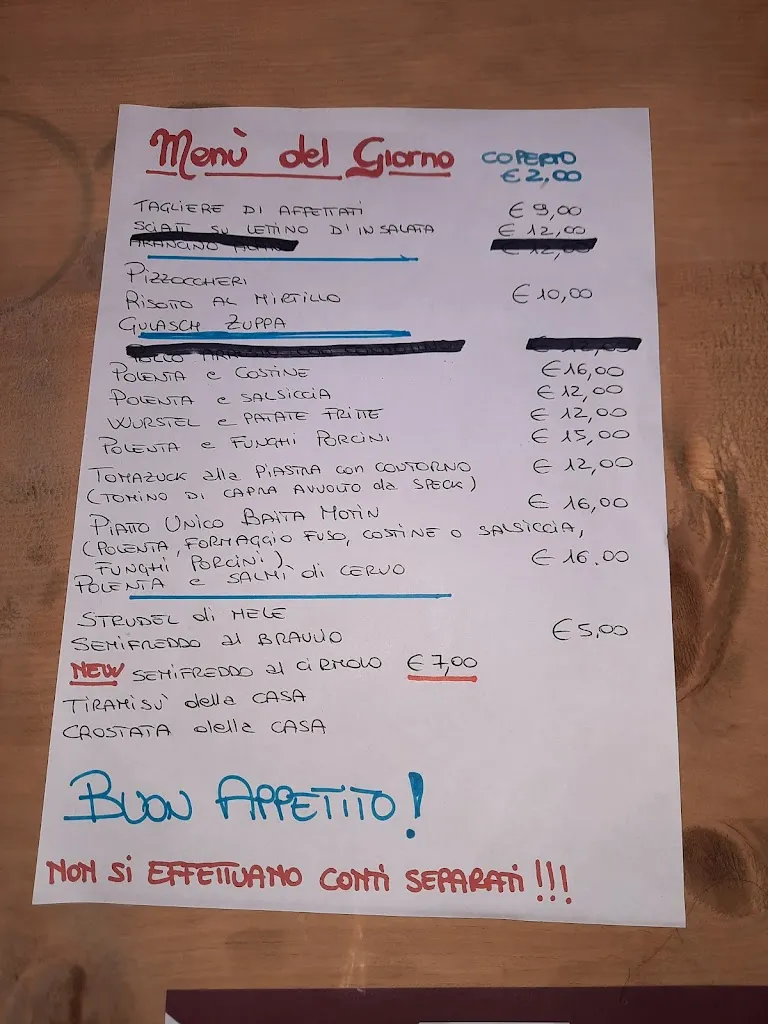 Menù del Giorno
COPERTO
€ 2,00
TAGLIERE DI AFFETTATI € 9,00
SCIATT SU LETTINO D'INSALATA € 12,00
PIZZOCCHERI
RISOTTO AL MIRTILLO € 10,00
GULASCH ZUPPA
POLENTA e COSTINE € 16,00
POLENTA e SALSICCIA € 12,00
WURSTEL e PATATE FRITTE € 12,00
POLENTA e FUNGHI PORCINI € 15,00
TOMAZUCK alla PIASTRA con CONTORNO € 12,00
(TOMINO DI CAPRA AVVOLTO da SPECK)
PIATTO UNICO BAITA MOTIN € 16,00
(POLENTA, FORMAGGIO FUSO, COSTINE O SALSICCIA,
FUNGHI PORCINI)
POLENTA e SALMÌ di CERVO € 16.00
STRUDEL di MELE
SEMIFREDDO al BRAULIO € 5,00
NEW SEMIFREDDO al CIRMOLO € 7,00
TIRAMISÙ della CASA
CROSTATA della CASA
BUON APPETITO!
NON SI EFFETTUANO CONTI SEPARATI!!!